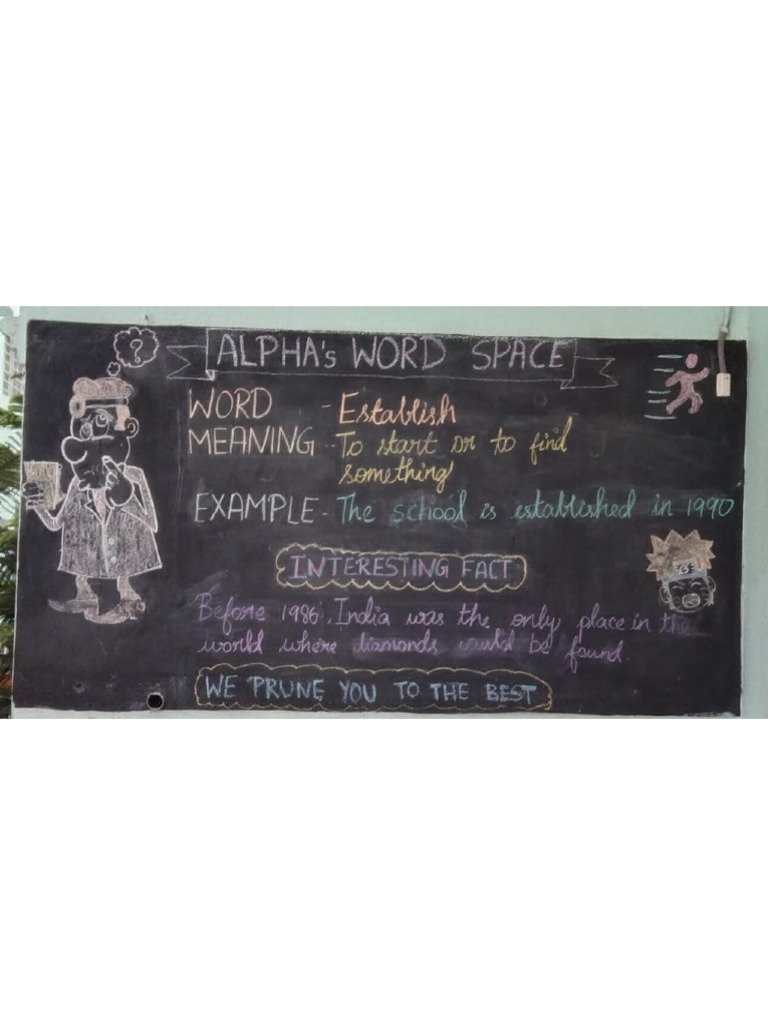 ?
ALPHA's WORD SPACE
WORD - Establish
MEANING - To start or to find
something
EXAMPLE - The school is established in 1990
INTERESTING FACT
Before 1986, India was the only place in the
world where diamonds could be found.
WE PRUNE YOU TO THE BEST